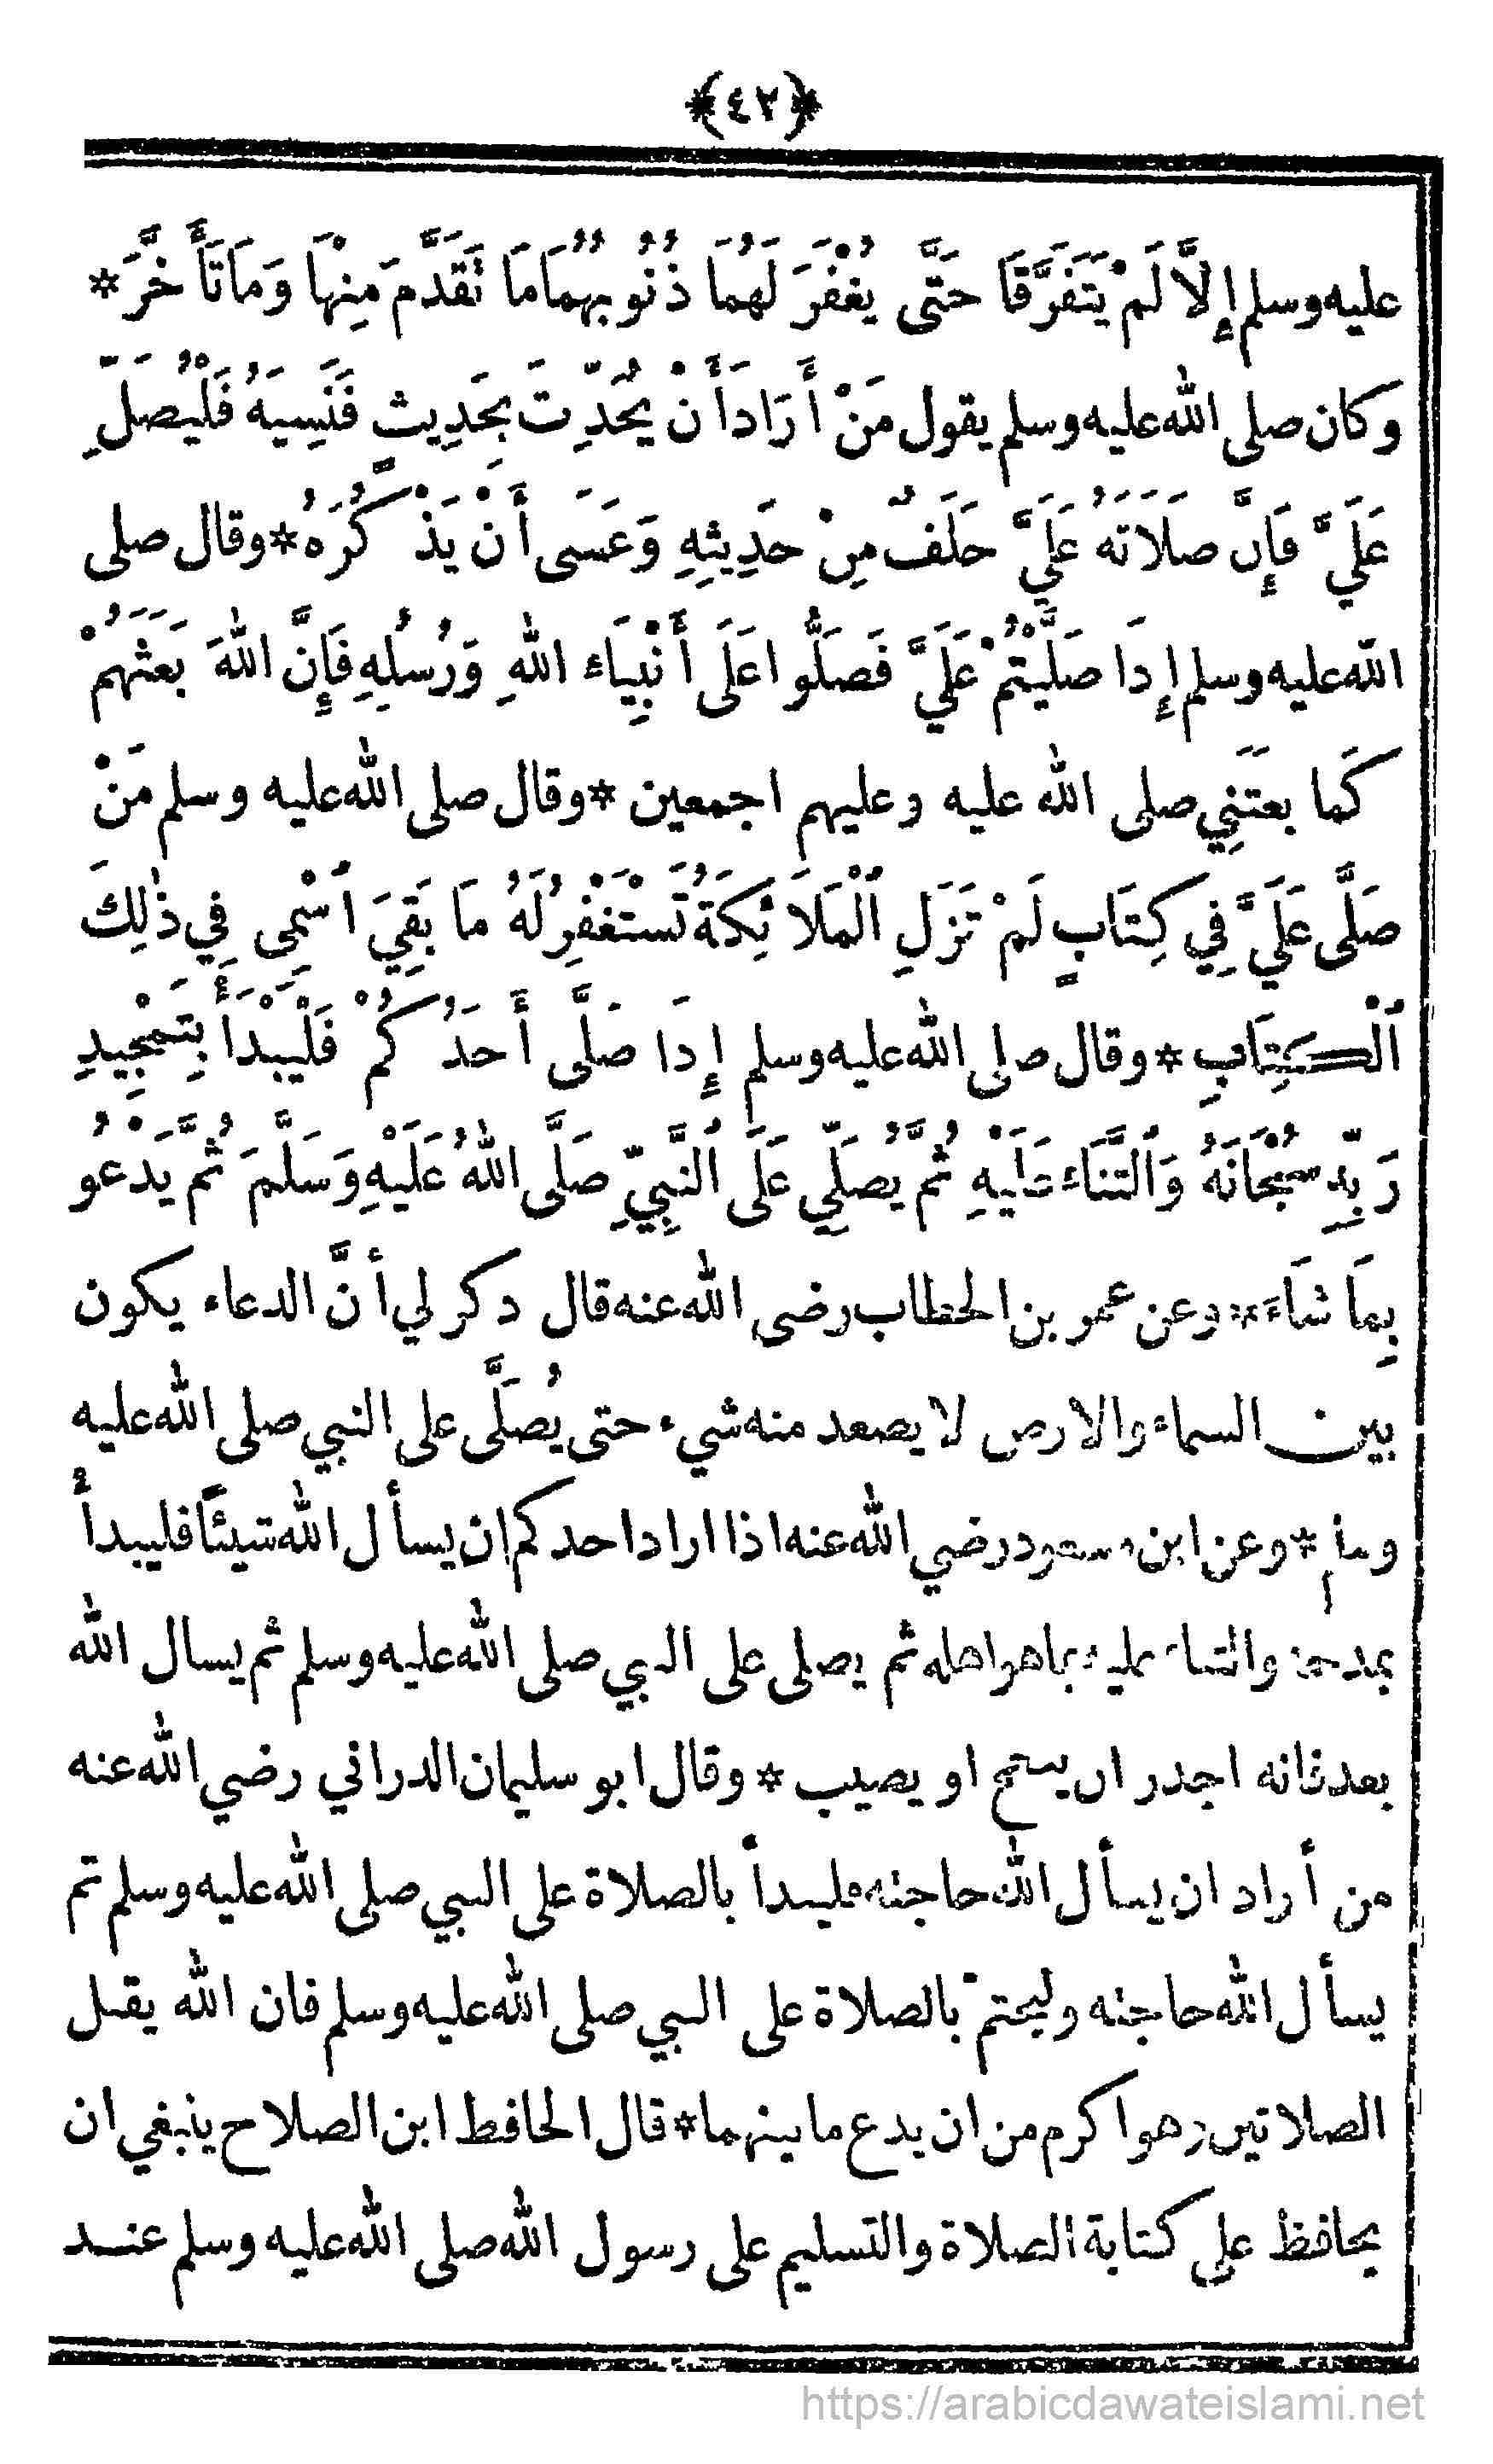 ﴿٤٢﴾
عليه وسلم إِلَّا لَمْ يَتَفَرَّقَا حَتَّى يُغْفَرَ لَهُمَا ذُنُوبُهُمَا مَا تَقَدَّمَ مِنْهَا وَمَا تَأَخَّرَ *
وكان صلى الله عليه وسلم يقول مَنْ أَرَادَ أَنْ يُحَدِّثَ بِحَدِيثٍ فَنَسِيَهُ فَلْيُصَلِّ
عَلَيَّ فَإِنَّ صَلَاتَهُ عَلَيَّ خَلَفٌ مِنْ حَدِيثِهِ وَعَسَى أَنْ يَذَّكَّرَهُ * وقال صلى
الله عليه وسلم إِذَا صَلَّيْتُمْ عَلَيَّ فَصَلُّوا عَلَى أَنْبِيَاءِ اللهِ وَرُسُلِهِ فَإِنَّ اللهَ بَعَثَهُمْ
كَمَا بعثَنِي صلى الله عليه وعليهم اجمعين * وقال صلى الله عليه وسلم مَنْ
صَلَّى عَلَيَّ فِي كِتَابٍ لَمْ تَزَلِ ٱلْمَلَائِكَةُ تَسْتَغْفِرُ لَهُ مَا بَقِيَ ٱسْمِي فِي ذٰلِكَ
ٱلْكِتَابِ * وقال صلى الله عليه وسلم إِذَا صَلَّى أَحَدُكُمْ فَلْيَبْدَأْ بِتَمْجِيدِ
رَبِّهِ سُبْحَانَهُ وَٱلثَّنَاءِ عَلَيْهِ ثُمَّ يُصَلِّي عَلَى ٱلنَّبِيِّ صَلَّى اللهُ عَلَيْهِ وَسَلَّمَ ثُمَّ يَدْعُو
بِمَا شَاءَ * وعن عمر بن الخطاب رضي الله عنه قال ذكر لي أنَّ الدعاء يكون
بين السماء والارض لا يصعد منه شيء حتى يُصَلَّى على النبي صلى الله عليه
وسلم * وعن ابن مسعود رضي الله عنه اذا اراد احدكم ان يسأل الله شيئًا فليبدأْ
بمدحه والثناء عليه بما هو اهله ثم يصلى على النبي صلى الله عليه وسلم ثم يسال الله
بعد فانه اجدر ان ينجح او يصيب * وقال ابو سليمان الدراني رضي الله عنه
من أراد ان يسأل الله حاجته فليبدأ بالصلاة على النبي صلى الله عليه وسلم ثم
يسأل الله حاجته وليختم بالصلاة على النبي صلى الله عليه وسلم فان الله يقبل
الصلاتين وهو اكرم من ان يدع ما بينهما * قال الحافظ ابن الصلاح ينبغي ان
يحافظ على كتابة الصلاة والتسليم على رسول الله صلى الله عليه وسلم عند
https://arabicdawateislami.net